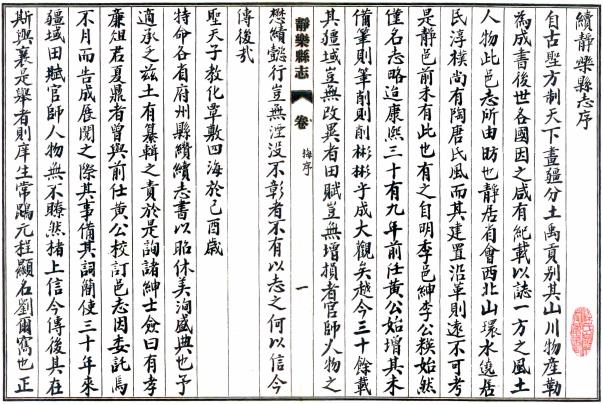 續靜樂縣志序
自古聖方制天下畫疆分土禹貢别其山川物產勒
為成書後世各國因之咸有紀載以誌一方之風土
人物此邑志所由昉也靜居省會西北山環水遶居
民淳樸尚有陶唐氏風而其建置沿革則遠不可考
是靜邑前未有此也有之自明季邑紳李公稶始然
僅名志略迨康熙三十有九年前任黄公始增其未
備筆則筆削則削彬彬乎成大觀矣越今三十餘載
其疆域豈無改異者田賦豈無增損者官師人物之
靜樂縣志
卷
梅序
一
懋績懿行豈無湮没不彰者不有以志之何以信今
傳後哉
聖天子教化覃敷四海於己酉歲
特命各省府州縣續纘志書以昭休美洵盛典也予
適承乏兹土有纂輯之責於是詢諸紳士僉曰有孝
廉俎君夏鼎者曾與前任黄公校訂邑志因委託焉
不月而告成展閲之際其事備其詞簡使三十年來
疆域田賦官師人物無不瞭然楮上信今傳後其在
斯與襄是舉者則庠生常鵾元程顯名劉爾寫也正